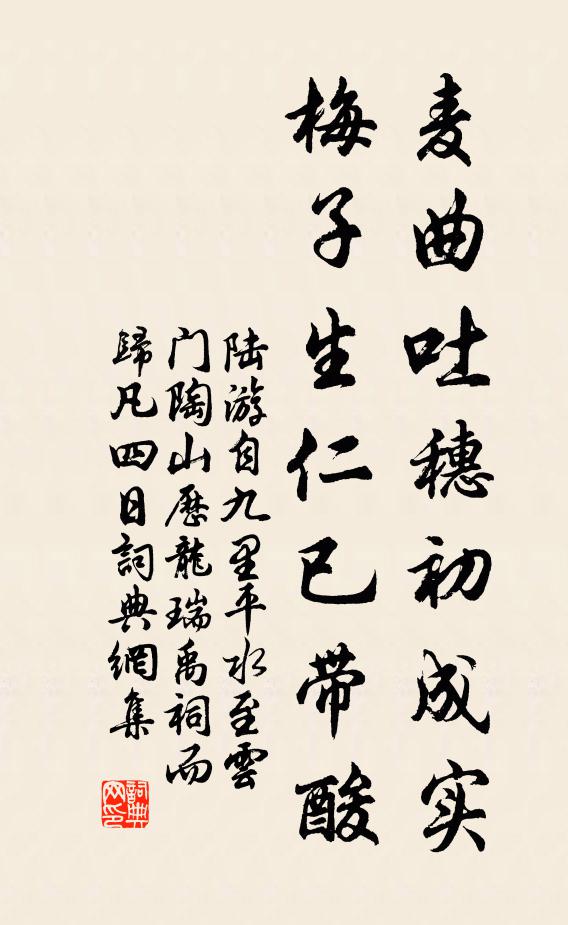 麦曲吐穗初成实
梅子生仁已带酸
陆游自九里平水至雲
门陶山歷龍瑞禹祠而
歸凡四日詞典網集
詞典
网印